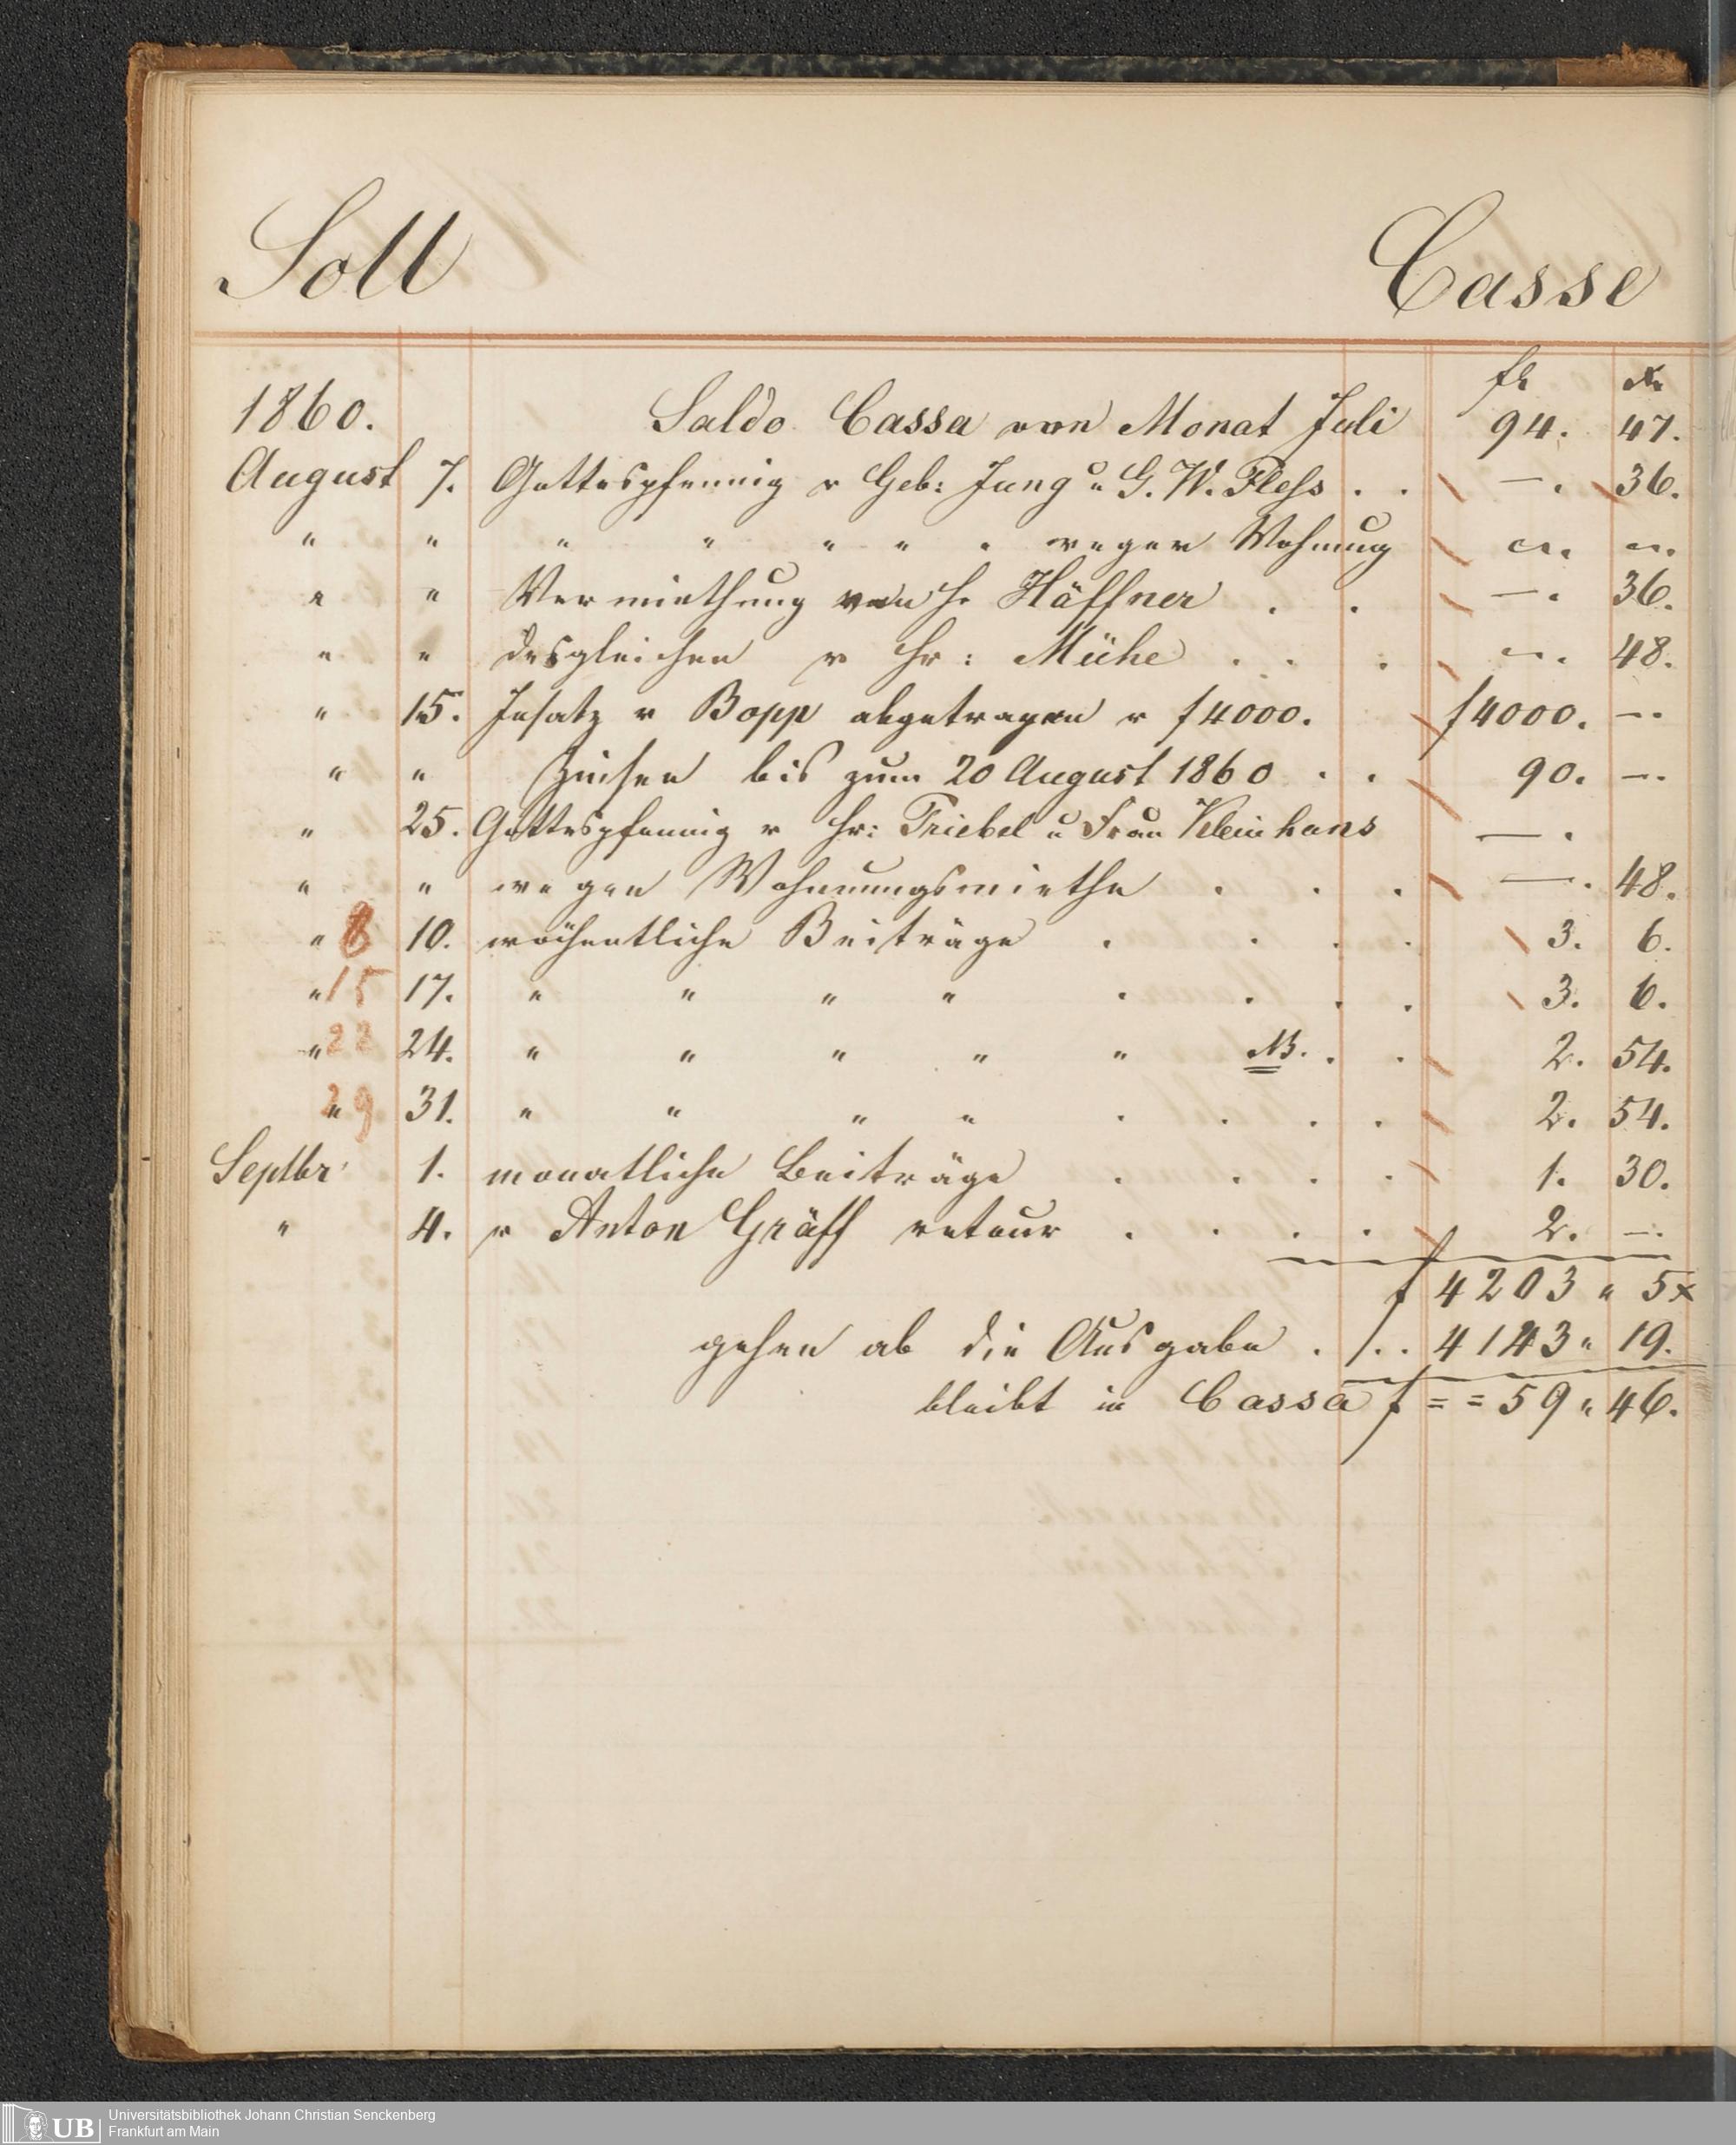 Soll Casse
fl xr
1860. Saldo Cassa vom Monat Juli 94. 47.
August 7. Gottespfennig v Geb: Jung u G. W. Fleſs . . —. 36.
" " " " " " " wegen Wohnung
" " Vermiethung von H. Häffner . . —. 36.
" " desgleichen v Hr: Mühe . . . —. 48.
" 15. Insatz v Bopp abgetragen v f 4000. f 4000. —.
" " Zinsen bis zum 20 August 1860 . . 90. —.
" 25. Gottespfennig v Hr: Triebel u Frau Kleinhans —.
" " wegen Wohnungsmiethe . . . —. 48.
" 8 10. wöchentliche Beiträge . . . . 3. 6.
" 15 17. " " " " . . . . 3. 6.
" 22 24. " " " " " NB. . . 2. 54.
" 29 31. " " " " . . . . 2. 54.
Septbr 1. monatliche Beiträge . . . . 1. 30.
" 4. v Anton Gräff retour . . . . 2. —.
f 4203 " 5 x
gehen ab die Ausgabe . /. . 4143 " 19.
bleibt in Cassa f = = 59 " 46.
UB Universitätsbibliothek Johann Christian Senckenberg
Frankfurt am Main